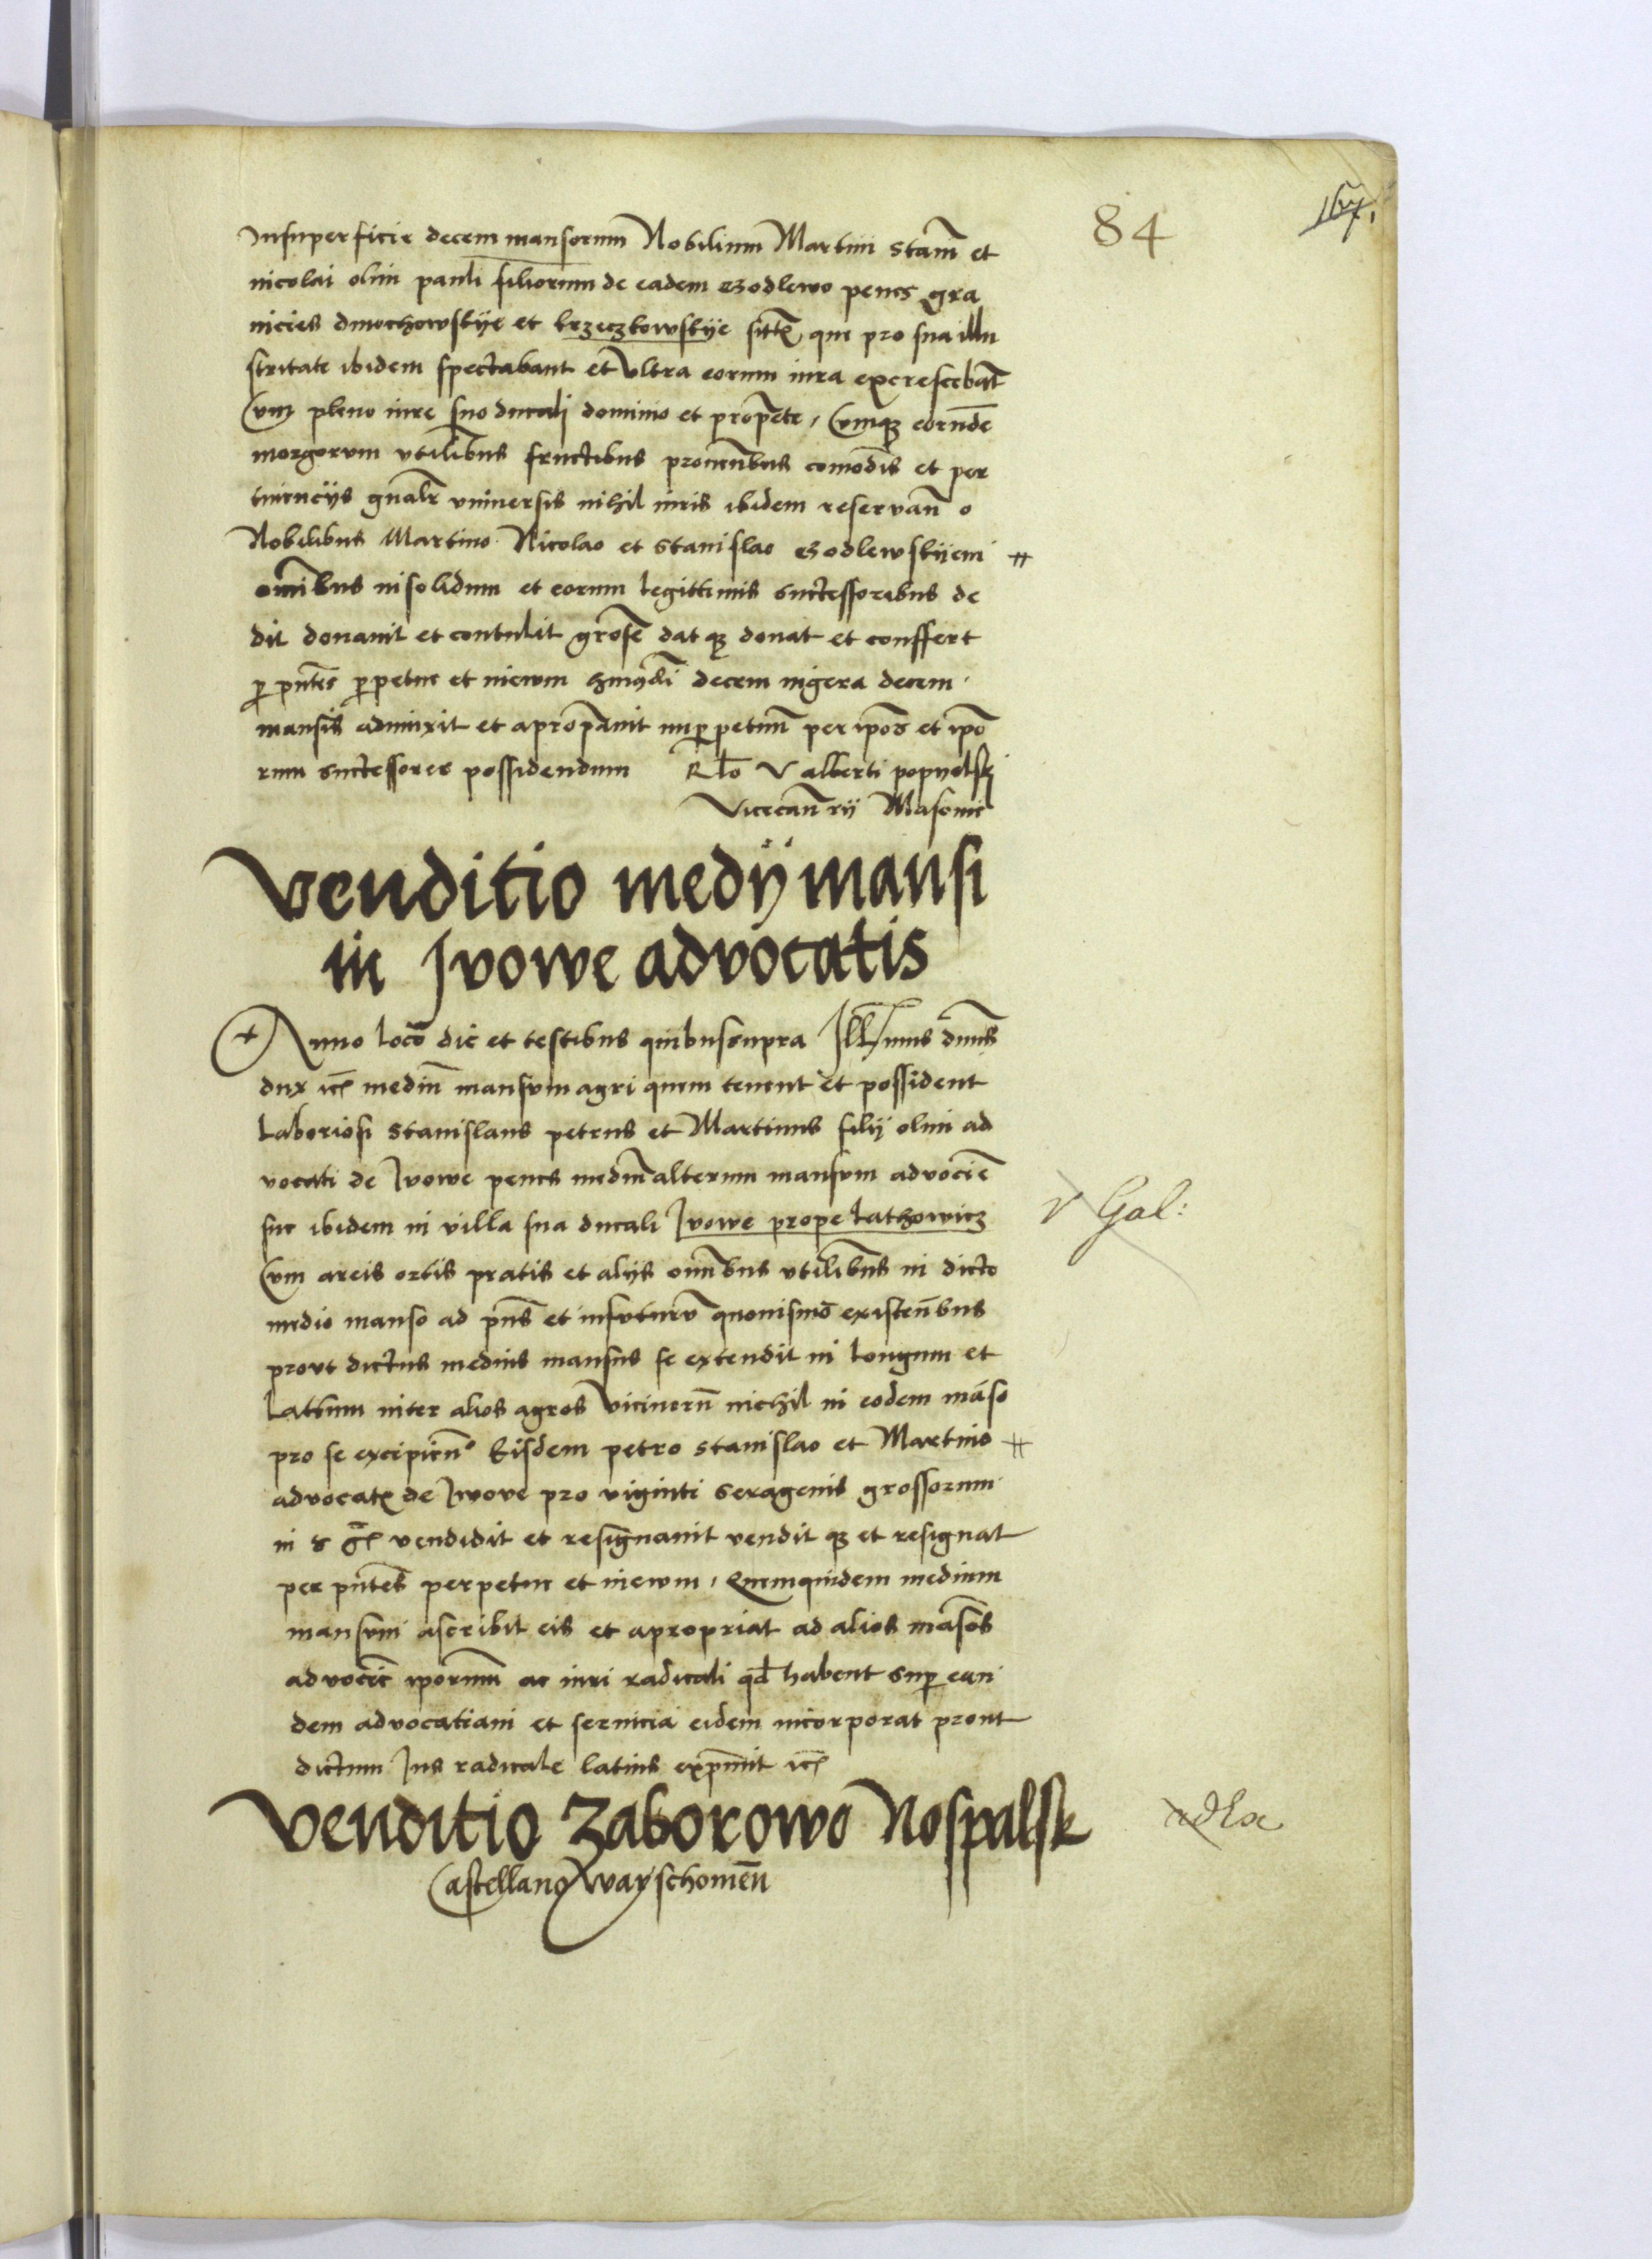 84
167
Insuperficie decem mansorum Nobilium Martini Stanis et
nicolai olim pauli filiorum de eadem Godlewo penes gra
nicies dmochowskye et krzeczkowskye que pro sua illu
stritate ibidem spectabant et ultra eorum iura excrescebāt
Cum pleno iure suo ducali dominio et propetē, Cumque eorundē
morgorum utilibus fructibus provenībus comodis et per
tinencijs gnālr universis nihil iuris ibidem reservān o
Nobilibus Martino Nicolao et Stanislao Godlewskyem
omībus insolidum et eorum legittimis successoribus de
dit donavit et contulit grōse dat que donat et conffert
per pntes perpetue et inevum hmōdi decem iugera decem
mansis adiunxit et apropāvit imperpetuum per ipos et ipo
rum successores possidendum Rlo Valberti popyelsk
Vicecan rij Masovie
Venditio medij mansi
in Jvowe advocatis
Anno loco die et testibus quibus supra Illmus dnus
dux ec mediū mansum agri quem tenent et possident
Laboriosi Stanislaus petrus et Martinus filij olim ad
vocati de Jvowe penes mediū alterum mansum advocie
sue ibidem in villa sua ducali Jvowe prope Lathowicz
v Gal:
Cum areis ortis pratis et alijs omībus utilibus in dicto
medio manso ad pns et infuturū quovismō existenībus
prout dictus medius mansus se extendit in longum et
Latum inter alios agros vicinorū nichil in eodem māso
pro se excipien° Eisdem petro Stanislao et Martino
advocatis de Jwove pro viginti sexagenis grossorum
in vendidit et resignavit vendit que et resignat
per pntes perpetue et inevum, Quemquidem medium
mansum ascribit eis et apropriat ad alios māsos
advocie iporum ac iuri radicali qd habent super ean
dem advocatiam et servicia eidem incorporat prout
dictum Jus radicale latius exprimit ec
Venditio Zaborowo Nospalsk
Castellano Wayschomen